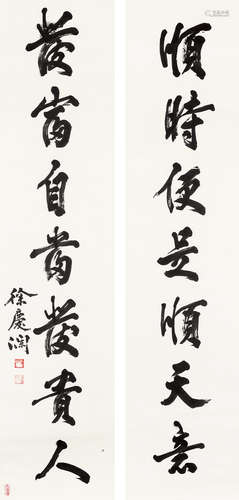 順時便是順天意
發富自當發貴人
徐慶潤